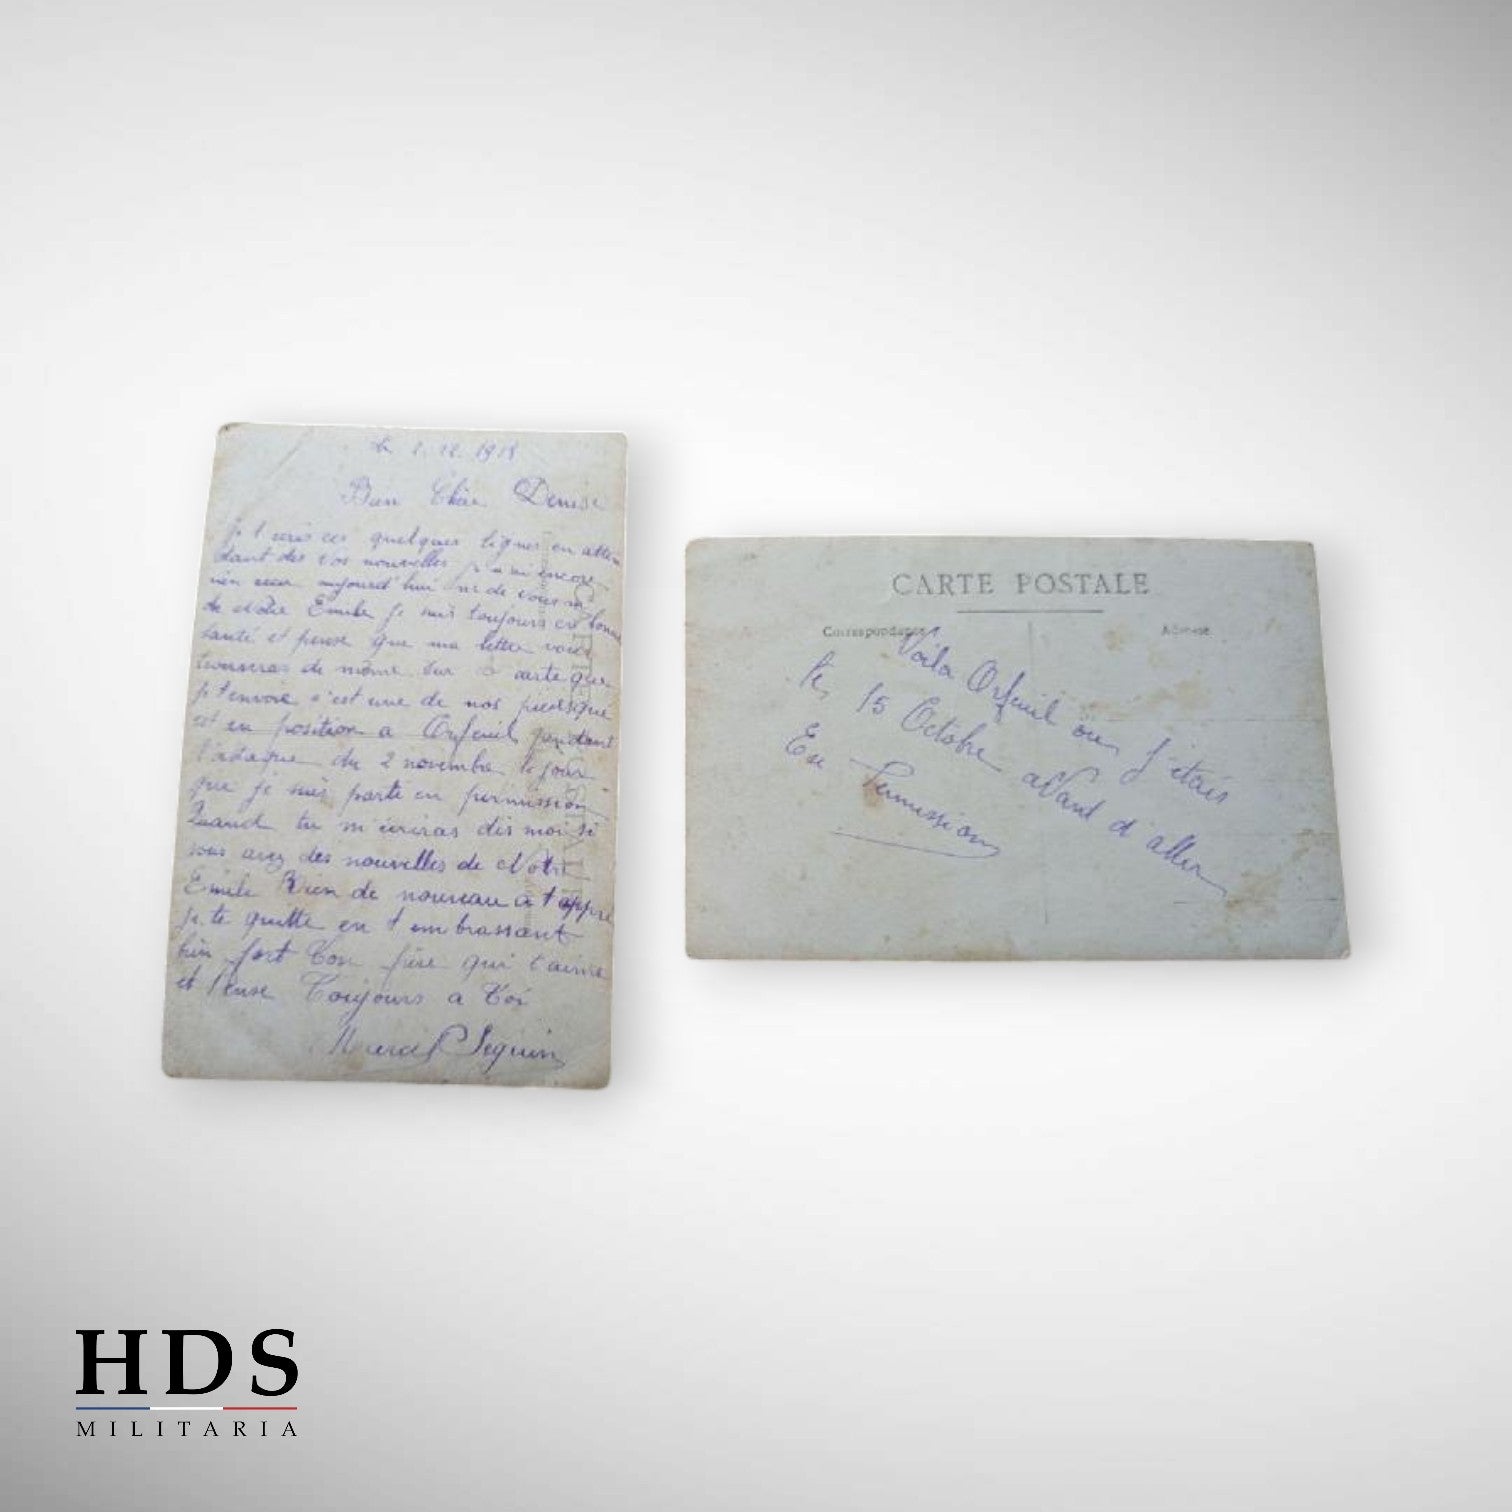 Le 2.12.1918
Bien Chère Denise
Je t'ecris ces quelques lignes en atten
dant des vos nouvelles je n'ai encore
rien reçu aujourd'hui ni de vous ni
de Notre Emile je suis toujours en bonne
santé et pense que ma lettre vous
trouveras de même. Sur la carte que
je t'envoie c'est une de nos pieds que
et en position a Orfeuil pendant
l'attaque du 2 novembre le jour
que je suis partie en permission
Quand tu m'écriras dis moi si
vous avez des nouvelles de Notre
Emile Rien de nouveau a t'appre
je te quitte en t'embrassant
bien fort Ton frère qui t'aime
et pense Toujours a Toi
Marcel Seguin
CARTE POSTALE
CARTE POSTALE
Correspondance
Adresse
Voila Orfeuil ou j'étais
le 15 Octobre avant d'aller
En Permission
HDS
MILITARIA